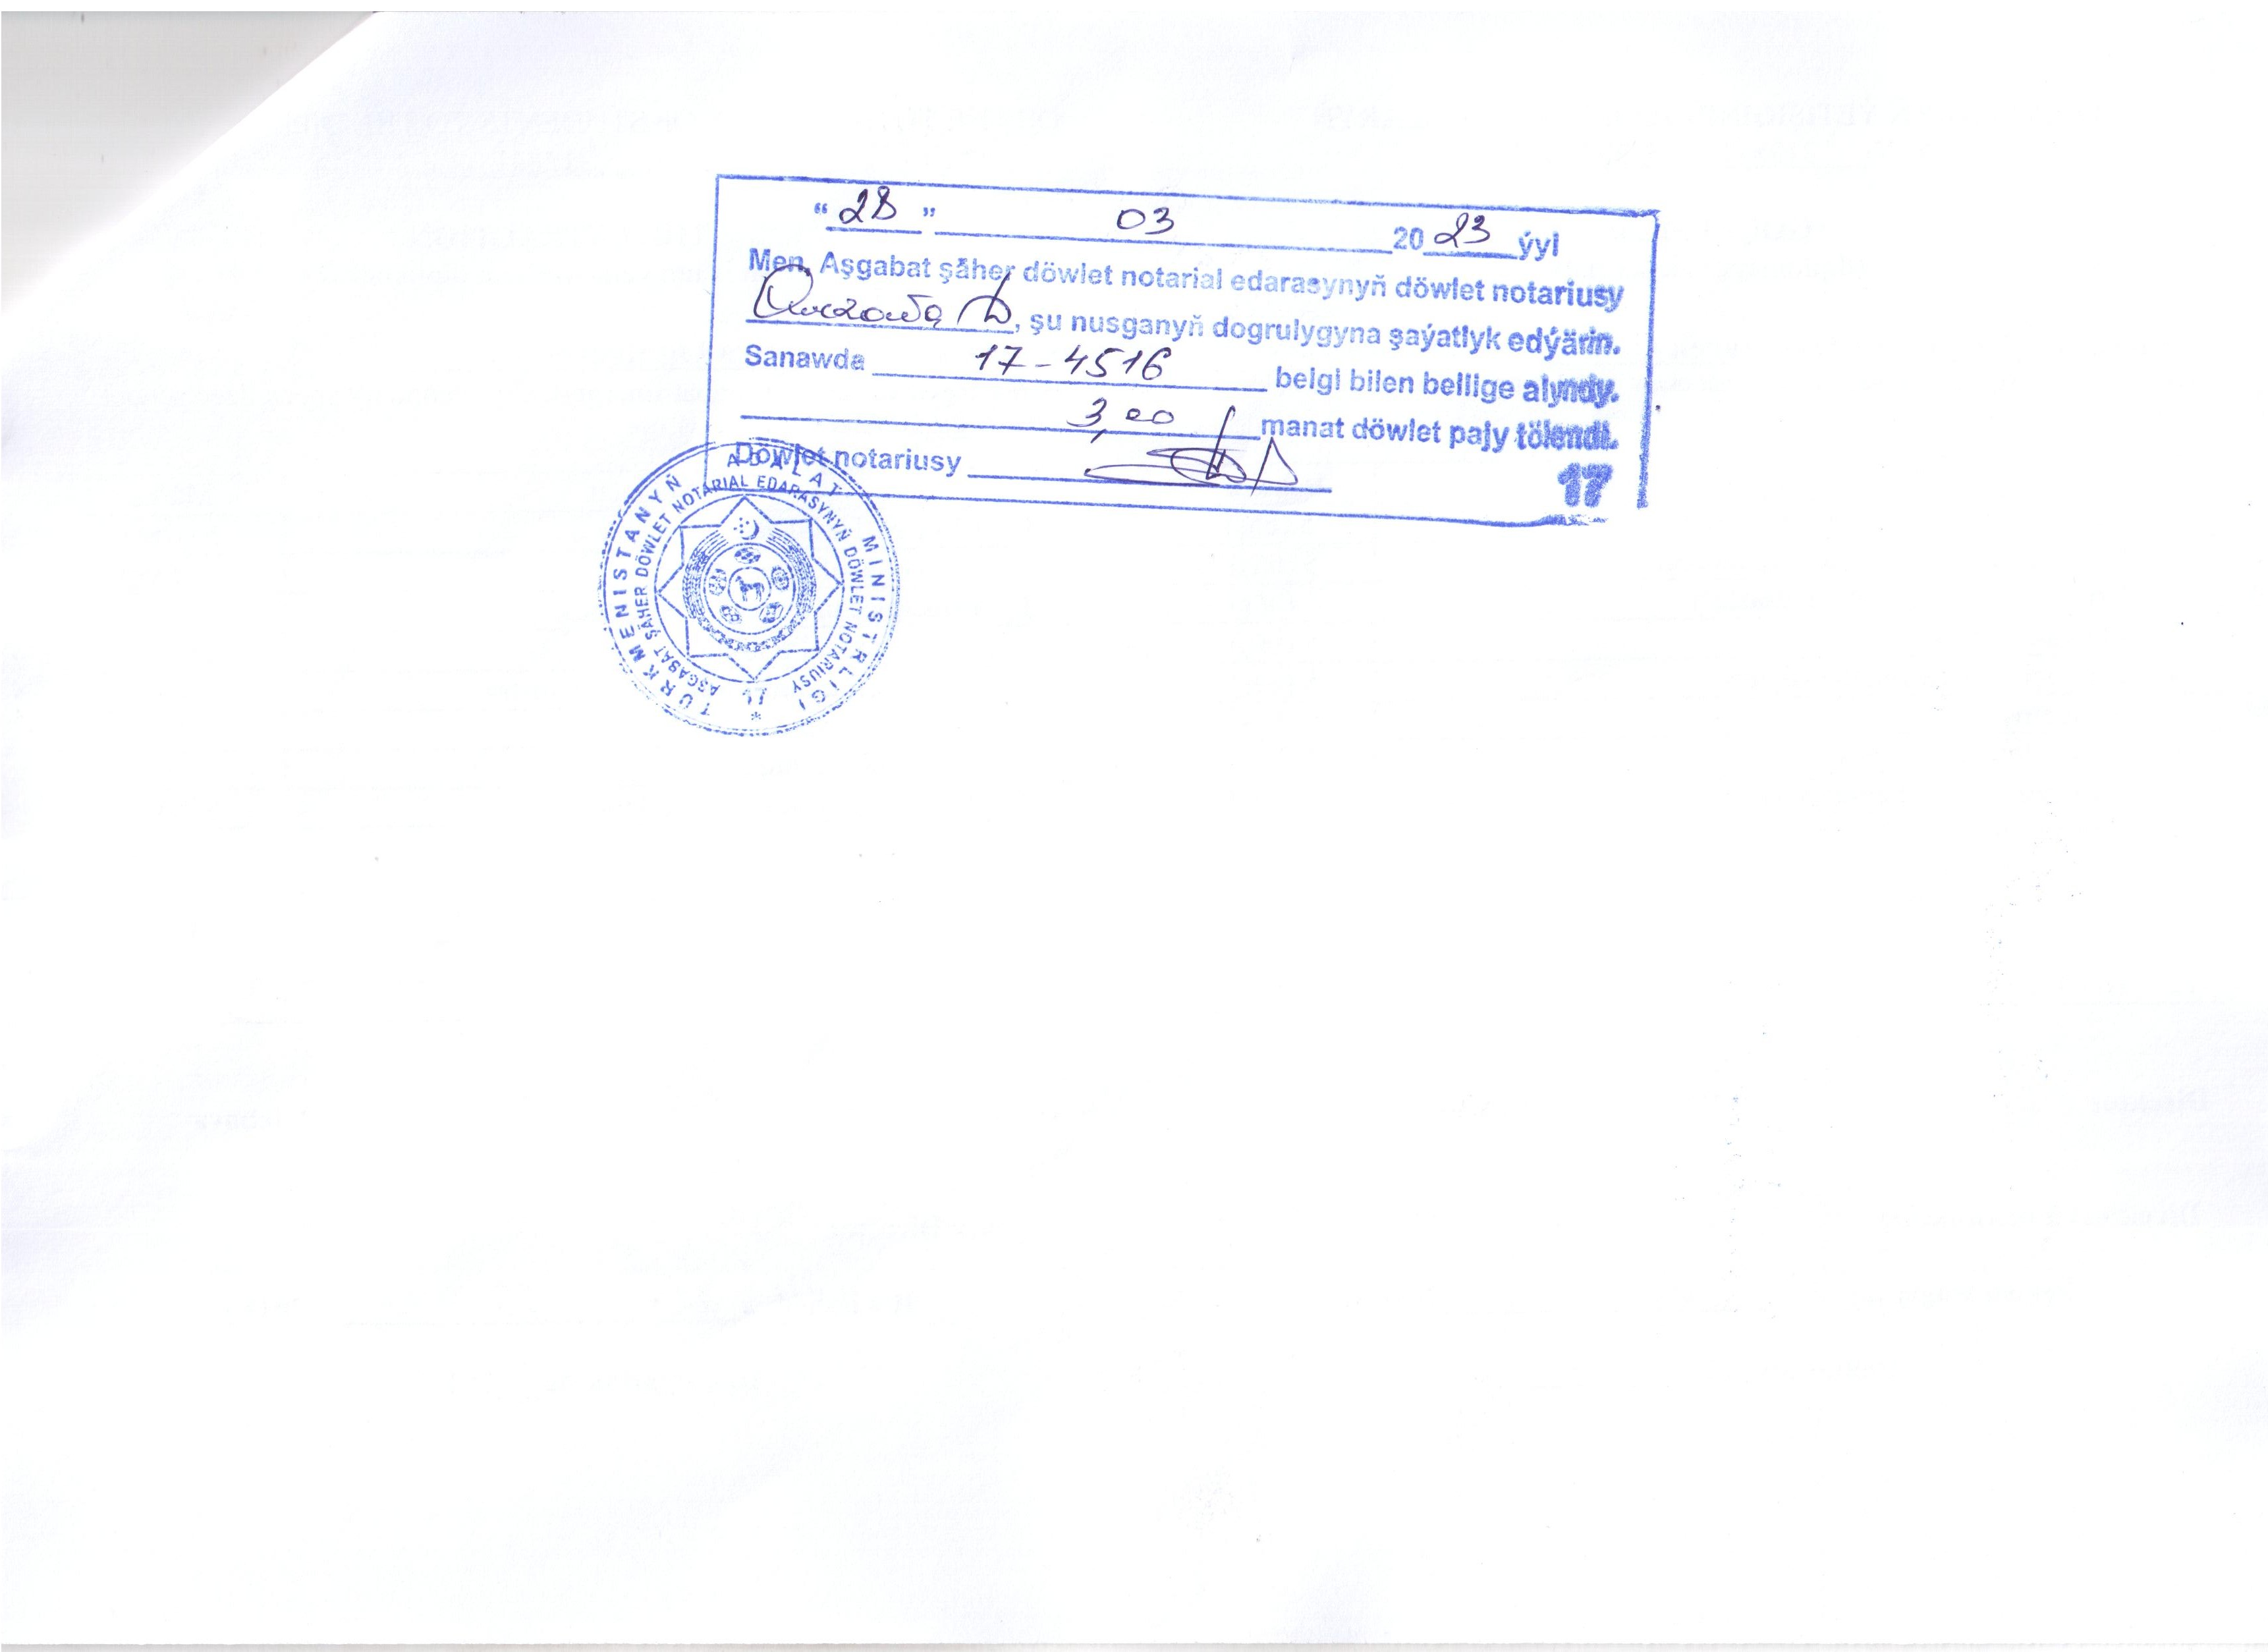 “ 28 ” 03 20 23 ýyl
Men, Aşgabat şäher döwlet notarial edarasynyň döwlet notariusy
, şu nusganyň dogrulygyna şaýatlyk edýärin.
Sanawda 17-4516 belgi bilen bellige alyndy.
3,00 manat döwlet pajy tölendi.
Döwlet notariusy
17
TÜRKMENISTANYŇ ADALAT MINISTRLIGI
AŞGABAT ŞÄHER DÖWLET NOTARIAL EDARASYNYŇ DÖWLET NOTARIUSY
17
*